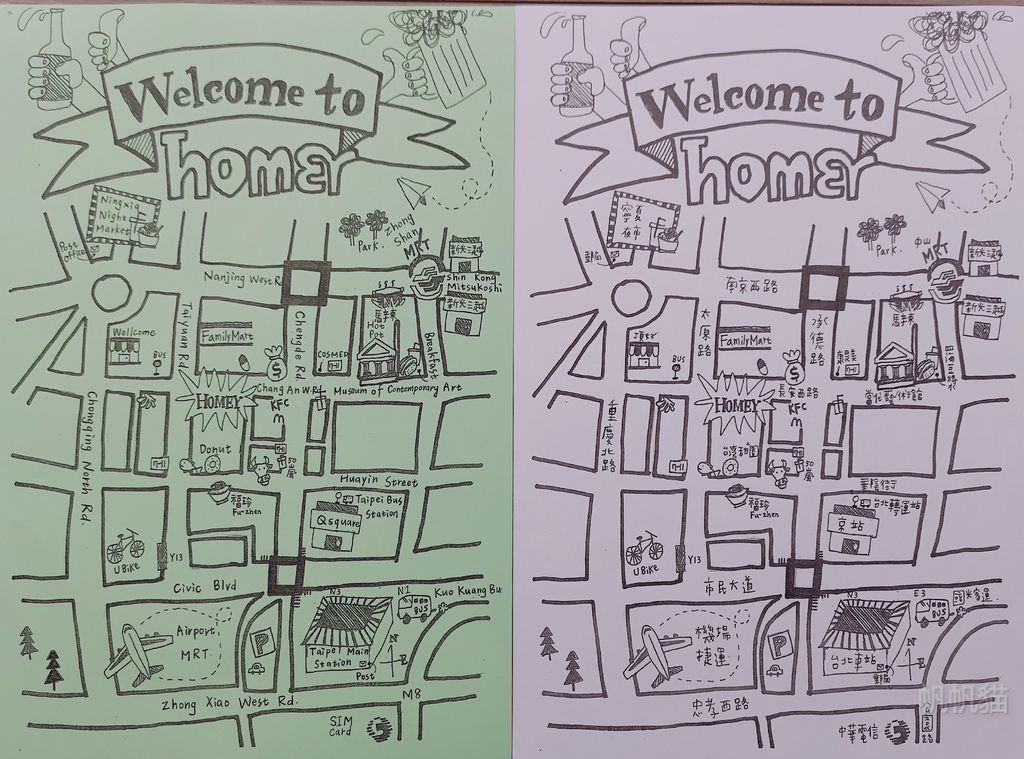 Welcome to
homey
Ningxia
Night
Market
Post
office
Park.
Zhong
Shan
MRT
新光三越
Shin Kong
Mitsukoshi
新光三越
Nanjing West R
Taiyuan Rd.
Chengde Rd
Wellcome
BUS
FamilyMart
$
COSMED
Hot
Pot
Breakfast
Chang An W.Rd
Museum of Contemporary Art
HOMEY
KFC
Chongqing North Rd.
Donut
7-11
50嵐
Huayin Street
福珍
Fu-zhen
Taipei Bus
Station
Qsquare
UBike
Y13
Civic Blvd
N3
N1
Kuo Kuang Bu
BUS
Airport.
MRT
P
Taipei Main
Station
Post
N
E
Zhong Xiao West Rd.
M8
SIM
Card
Welcome to
homey
寧夏
夜市
郵局
Park.
中山
MRT
新光三越
新光三越
南京西路
太原路
承德路
BUS
FamilyMart
$
康是美
長安西路
當代藝術館
HOMEY
KFC
重慶北路
台灣甜甜圈
7-11
50嵐
華陰街
福珍
Fu-zhen
台北轉運站
京站
UBike
Y13
市民大道
N3
E3
BUS
機場
捷運
P
台北車站
郵局
忠孝西路
中華電信
帆帆貓